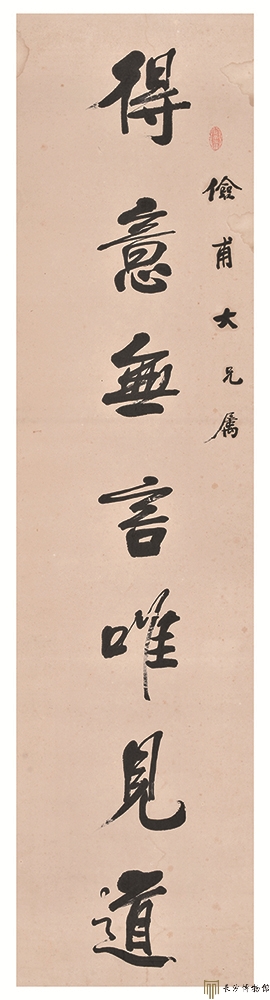 儉甫大兄属
得意無言唯見道
長沙博物館